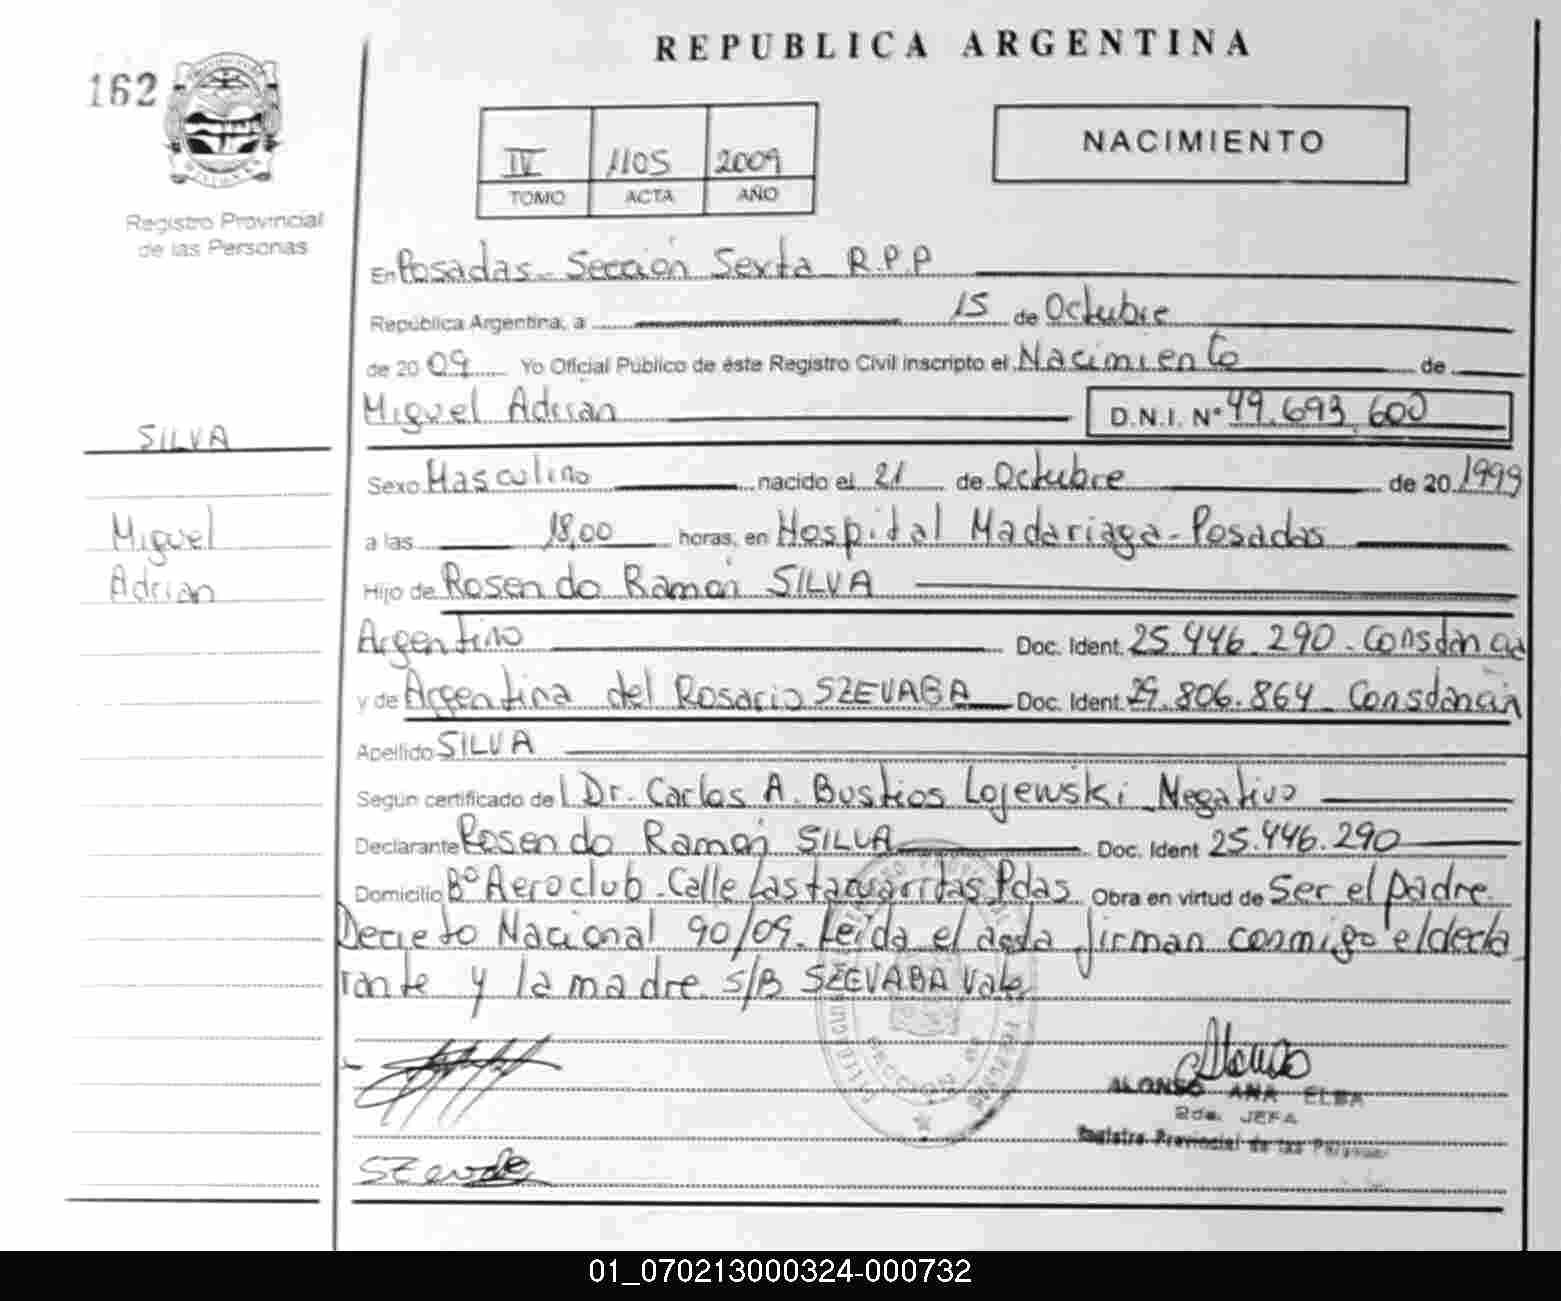 REPUBLICA ARGENTINA
162
IV 1105 2009
TOMO ACTA AÑO
NACIMIENTO
Registro Provincial
de las Personas
En Posadas - Sección Sexta R.P.P
República Argentina, a 15 de Octubre
de 2009 Yo Oficial Público de éste Registro Civil inscripto el Nacimiento de
Miguel Adrian D.N.I. Nº 49.693.600
SILVA
Miguel
Adrian
Sexo Masculino nacido el 21 de Octubre de 20 1999
a las 18,00 horas, en Hospital Madariaga - Posadas
Hijo de Rosendo Ramón SILVA
Argentino Doc. Ident. 25.446.290 - Constancia
y de Argentina del Rosario SZEVABA Doc. Ident. 29.806.864 - Constancia
Apellido SILVA
Según certificado del Dr. Carlos A. Bustios Lojewski Negativo
Declarante Rosendo Ramón SILVA Doc. Ident 25.446.290
Domicilio Bº Aeroclub - Calle Las tacuaritas Pdas. Obra en virtud de Ser el padre.
Decreto Nacional 90/09. Leída el acta firman conmigo el decla
rante y la madre. S/B SZEVABA Vale
ALONSO ANA ELBA
2da. JEFA
Registro Provincial de las Personas
01_070213000324-000732